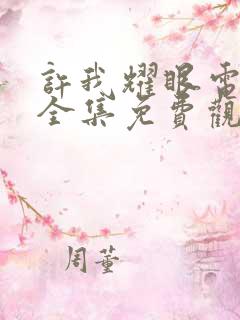 許我耀眼電
全集免費觀
周董